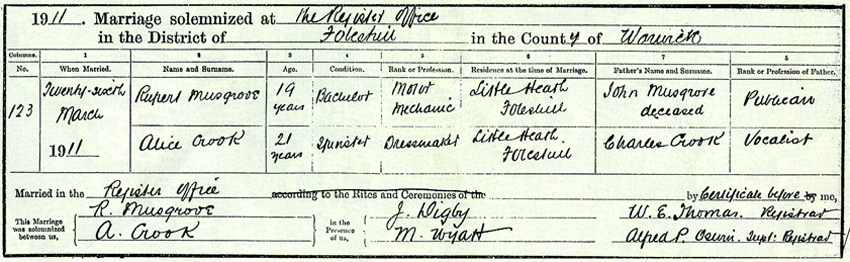 1911. Marriage solemnized at the Register Office
in the District of Foleshill in the County of Warwick
Columns. 1 2 3 4 5 6 7 8
No. When Married. Name and Surname. Age. Condition. Rank or Profession. Residence at the time of Marriage. Father's Name and Surname. Rank or Profession of Father.
123 Twenty-sixth March 1911
Rupert Musgrove 19 years Bachelor Motor Mechanic Little Heath Foleshill John Musgrove deceased Publican
Alice Crook 21 years Spinster Dressmaker Little Heath Foleshill Charles Crook Vocalist
Married in the Register Office according to the Rites and Ceremonies of the by Certificate before by me,
This Marriage was solemnized between us,
R. Musgrove
A. Crook
in the Presence of us,
J. Digby
M. Wyatt
W. E. Thomas. Registrar
Alfred P. Supt: Registrar